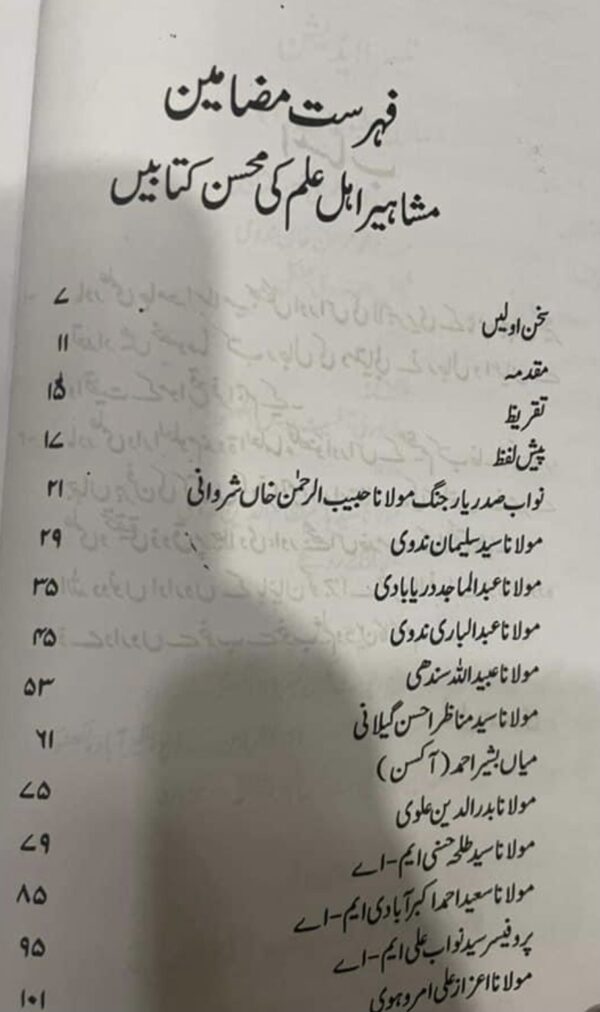 فہرست مضامین
مشاہیر اہل علم کی محسن کتابیں
سخن اولیں ۷
مقدمہ ۱۱
تقریظ ۱۵
پیش لفظ ۱۷
نواب صدر یار جنگ مولانا حبیب الرحمٰن خاں شروانی ۲۱
مولانا سید سلیمان ندوی ۲۹
مولانا عبدالماجد دریابادی ۳۵
مولانا عبدالباری ندوی ۴۵
مولانا عبیداللہ سندھی ۵۳
مولانا سید مناظر احسن گیلانی ۶۱
میاں بشیر احمد (آکسن) ۷۵
مولانا بدرالدین علوی ۷۹
مولانا سید طلحہ حسنی ایم-اے ۸۵
مولانا سعید احمد اکبر آبادی ایم-اے ۹۵
پروفیسر سید نواب علی ایم-اے ۱۰۱
مولانا اعزاز علی امروہوی